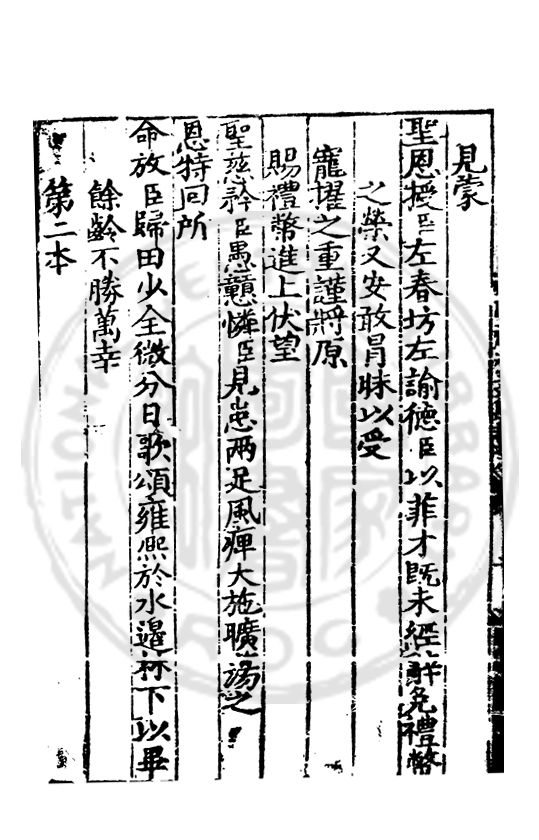 見蒙
聖恩授臣左春坊左諭德臣以菲才既未經辭免禮幣
之榮又安敢冒昧以受
寵擢之重謹將原
賜禮幣進上伏望
聖慈矜臣愚戇憐臣見患兩足風痺大施曠蕩之
恩特回所
命放臣歸田少全微分日歌頌雍熙於水邊林下以畢
餘齡不勝萬幸
第二本